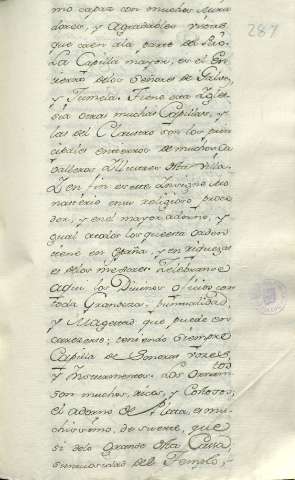 287
mo capaz con muchos mira
dores, y Agradables vistas,
que caen ala parte del Rio.
La Capilla mayor, es el En
tierro de los Señores de Galve,
y Jumela. Tiene esta Igle
sia otras muchas Capillas, y
las del Claustro son los prin
cipales entierros de muchos Ca
valleros Ilustres de la Villa.
Y en fin es este insigne Mo
nasterio en su religioso proce
der, y en el mayor adorno, y
igual a todos los que esta orden
tiene en España, y en riquezas
es de los mejores. Celebranse
aqui los Divinos oficios con
toda Grandeza, puntualidad,
y Magestad que puede en
carecerse; teniendo siempre
Capilla de Sonoras voces,
y Instrumentos. Los Ornam.tos
son muchos, ricos, y Costosos;
el adorno de Plata, es mu
chissimo, de suerte, que
si de lo grande de la Casa,
suntuosidad del Templo,